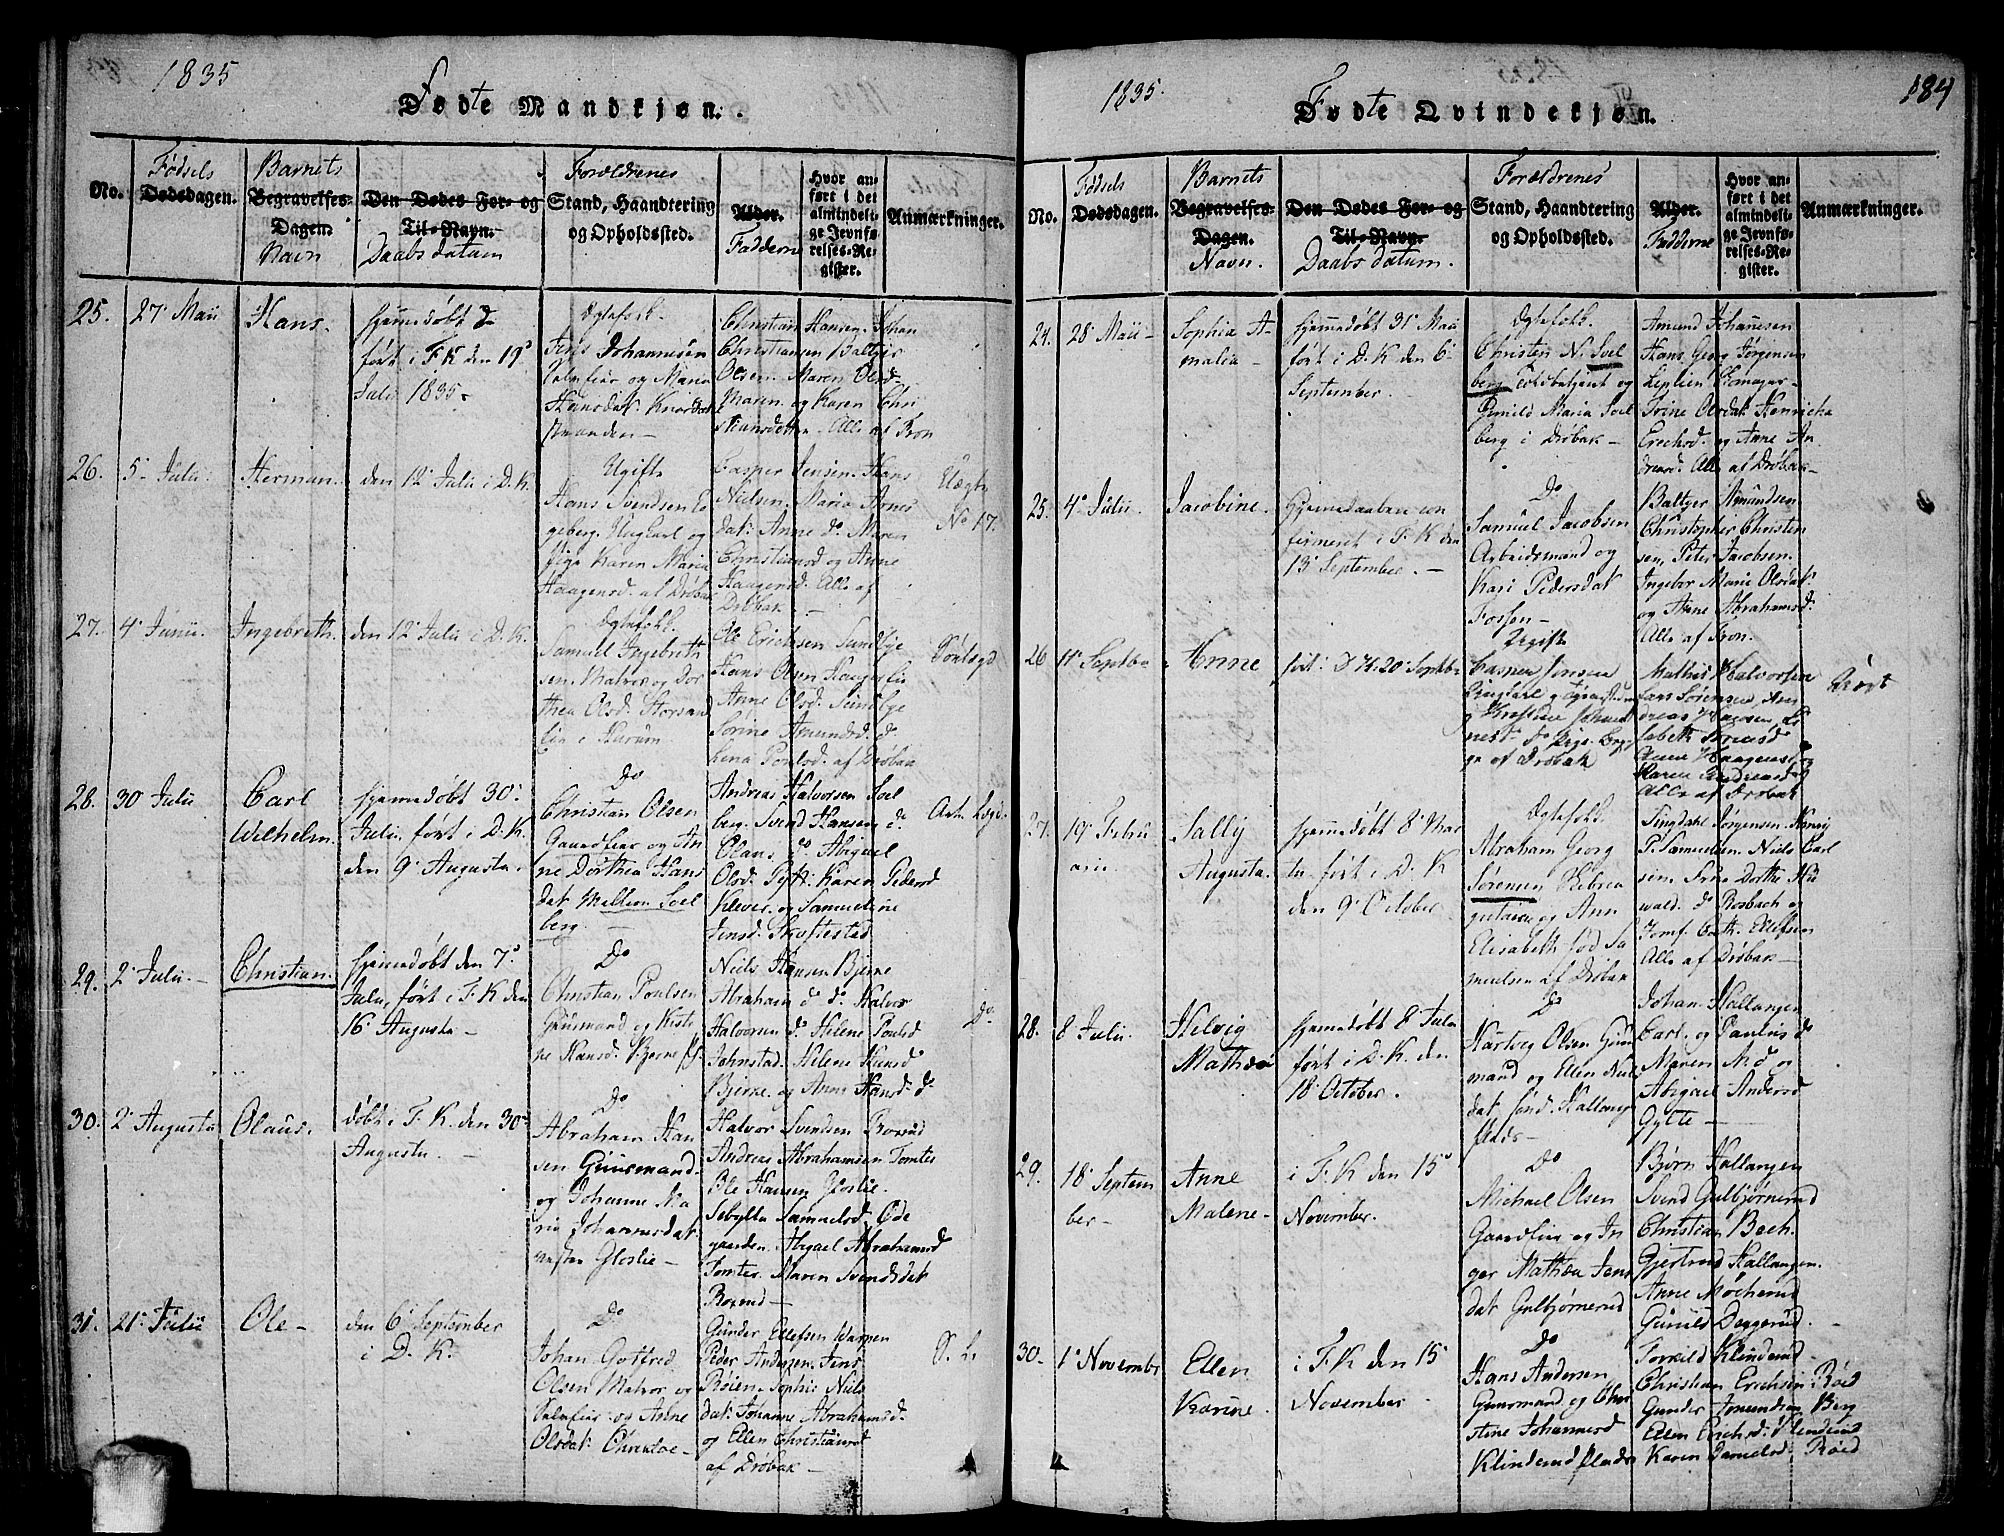 1835
Fødte Mandkjøn.
No.
Fødsels
Dødsdagen.
Barnets
Begravelses-
Dagen.
Navn
Den Dødes For- og
Til-Navn.
Daabs datum
Forældrenes
Stand, Haandtering
og Opholdssted.
Alder.
Fadderne
Hvor an-
ført i det
almindeli-
ge Jevnfø-
relses-Re-
gister.
Anmærkninger.
25.
27de Maii
Hans.
hjemmedøbt
ført i F. K den 19
Julii 1835.
Ægtefolk.
Jens Johannesen
og Maria
Hansdat
Christian Hansen Johan
Christiansen Baltzer
Olsen. Maren Olsd.
Maren og Karen Chri
stiansdøttre. Alle af Fron
26.
5 Julii
Herman.
den 12 Julii i D. K.
Ugifte
Hans Svendsen
Ungkarl og
Pige Karen Maria
Haagensd. af Drøbak
Casper Jensen. Hans
Nielsen. Maria Arnes
dat. Anne do Maren
Christiansd og Anne
Haagensd. Alle af
Drøbak
Uægte
No 17.
27.
4 Junii.
Ingebreth.
den 12 Julii i D. K.
Ægtefolk.
Samuel Ingebreth
sen. Matros og Dor
thea Olsd. Storsand
i Hurum
Ole Ericksen Sundbye
Hans Olsen
Anne Olsd. Sundbye
Sørine Amundsd. do
Lena Poulsd. af Drøbak
28.
30 Julii
Carl
Wilhelm.
hjemmedøbt 30
Julii, ført i D. K.
den 9 Augusta.
Do
Christian Olsen
Gaardfeier og An
ne Dorthea Hans
dat Mellom Soel
berg.
Andreas Halvorsen Soel
berg. Svend Hansen do.
Olaus do Abigael
Olsd. Karen Pedersd
Klever og Samueline
Jensd. Skoftestad
29.
2 Julii
Christian.
hjemmedøbt den 7
Julii, ført i F. K den
16 Augusta
Do
Christian Poulsen
Huusmand og Kirsti
ne Hansd. Bjerne
Niels Hansen Bjerne
Abraham do do. Halvor
Halvorsen do Helene Poulsd
Johnstad. Helene Hansd
Bjerke og Anne Hansd. do
Do
30.
2 Augusta
Olaus.
døbt i F. K. den 30
Augusta.
Do
Abraham Han
sen Huusmand
og Johanne Ma
rie Johannesdat
Gloslie
Halvor Svendsen
Andreas Abrahamsen Tomter
Ole Hansen Gloslie.
Sebylla Samuelsd. Øde
gaarden. Abigael Abrahamsd
Tomter. Maren Svendsdat
31.
21 Julii
Ole
den 6 September
i D. K.
Do
Johan Gotfred
Olsen Matros og
og Anne
Olsdat.
Gunder Ellefsen
Peder Andersen. Jens
Røien. Sophie Niels
dat. Johanne Abrahamsd.
og Ellen Christiansd
af Drøbak
S. L.
1835.
184
Fødte Qvindekjøn.
No.
Fødsels
Dødsdagen.
Barnets
Begravelses-
Dagen.
Navn.
Den Dødes For- og
Til-Navn.
Daabs datum.
Forældrenes
Stand, Haandtering
og Opholdssted.
Alder.
Fadderne
Hvor an-
ført i det
almindeli-
ge Jevnfø-
relses-Re-
gister.
Anmærkninger.
24.
28 Maii
Sophia A-
malia
hjemmedøbt 31 Maii
ført i D. K den 6
September.
Ægtefolk.
Christen N. Soel
berg Toldbetjent og
Maria Soel
berg i Drøbak
Amund Johannesen
Hans Georg Jørgensen
Trine Olsdat Henricha
Erechsd. og Anne An
dreasd. Alle af Drøbak
25.
4 Julii.
Jacobine.
Hjemmedaaben con
firmeret i F. K den
13 September.
Do
Samuel Jacobsen
Arbeidsmand og
Kari Pedersdat
Fossen
Baltzer Amundsen
Christopher Christen
sen, Peter Jacobsen.
Ingebor Marie Olsdat.
og Anne Abrahamsd.
Alle af Fron.
26
11 Septbr
Anne
ført i D. K. 20 Septbr
Ugifte
Casper Jensen
Ungkarl
af Drøbak
Mathis Halvorsen
Hans Sørensen, An
Anne Haagensd og
Karen Andreasd
Alle af Drøbak
Uægt
27.
19 Febru
arii
Sally
Augusta.
hjemmedøbt 8 Mar
tii ført i D. K
den 9 October.
Ægtefolk.
Abraham Georg
Sørensen
og Ann
Elisabeth fød Sa
muelsen af Drøbak
Tingdahl Sørensen. Henry
P. Samuelsen. Niels Carl
Dorthe
do Rosbach og
Jomf. Cath. Ellefsen
Alle af Drøbak
28.
8 Julii
Helvig
Mathea
hjemmedøbt 8 Julii
ført i D. K. den
18 October.
Do
Hartvig Olsen Huus
mand og Ellen Niels
dat Hallang
Johan Hallangen
Carl og Paulus do
Maren N. d og
Abigael Andersd
Gylte
29.
18 Septem
ber
Anne
Malene
i F. K den 15
November.
Do
Michael Olsen
Gaardfeier og In
ger Mathea Jens
dat Gulbjørnerud
Bjørn Hallangen
Svend Gulbjørnerud
Christian Bech.
Gjertrud Hallangen.
Anne Mocherud
Gunild Deggerud.
30.
1 Novembr
Ellen
Karine.
i F. K den 15
November
Do
Hans Andersen
Huusmand og Chri
stine Johannesd
Klinderud
Torkild Klinderud
Christian Erichsen Røed
Gunder Amundsen Berg
Ellen Erichsd. Klinderud
Karen Danielsd. Røed